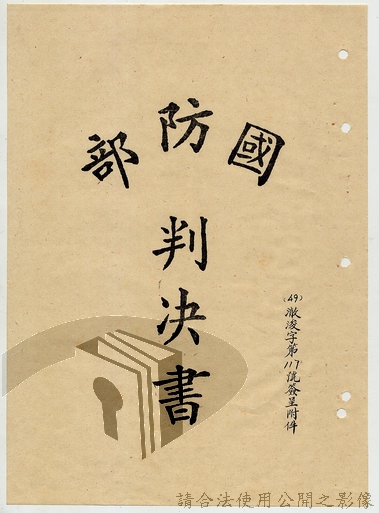 國防部
判决書
(49)澈浚字第117號簽呈附件
請合法使用公開之影像